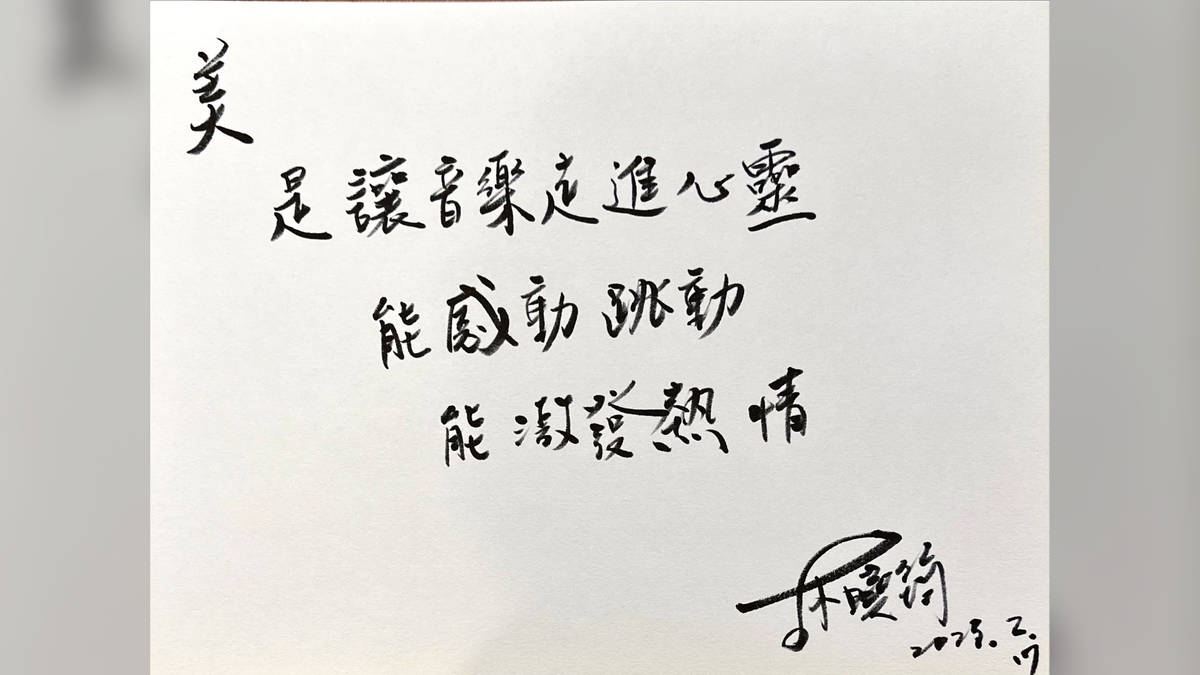 美
是讓音樂走進心靈
能感動跳動
能激發熱情
林曉筠
2025.2.17